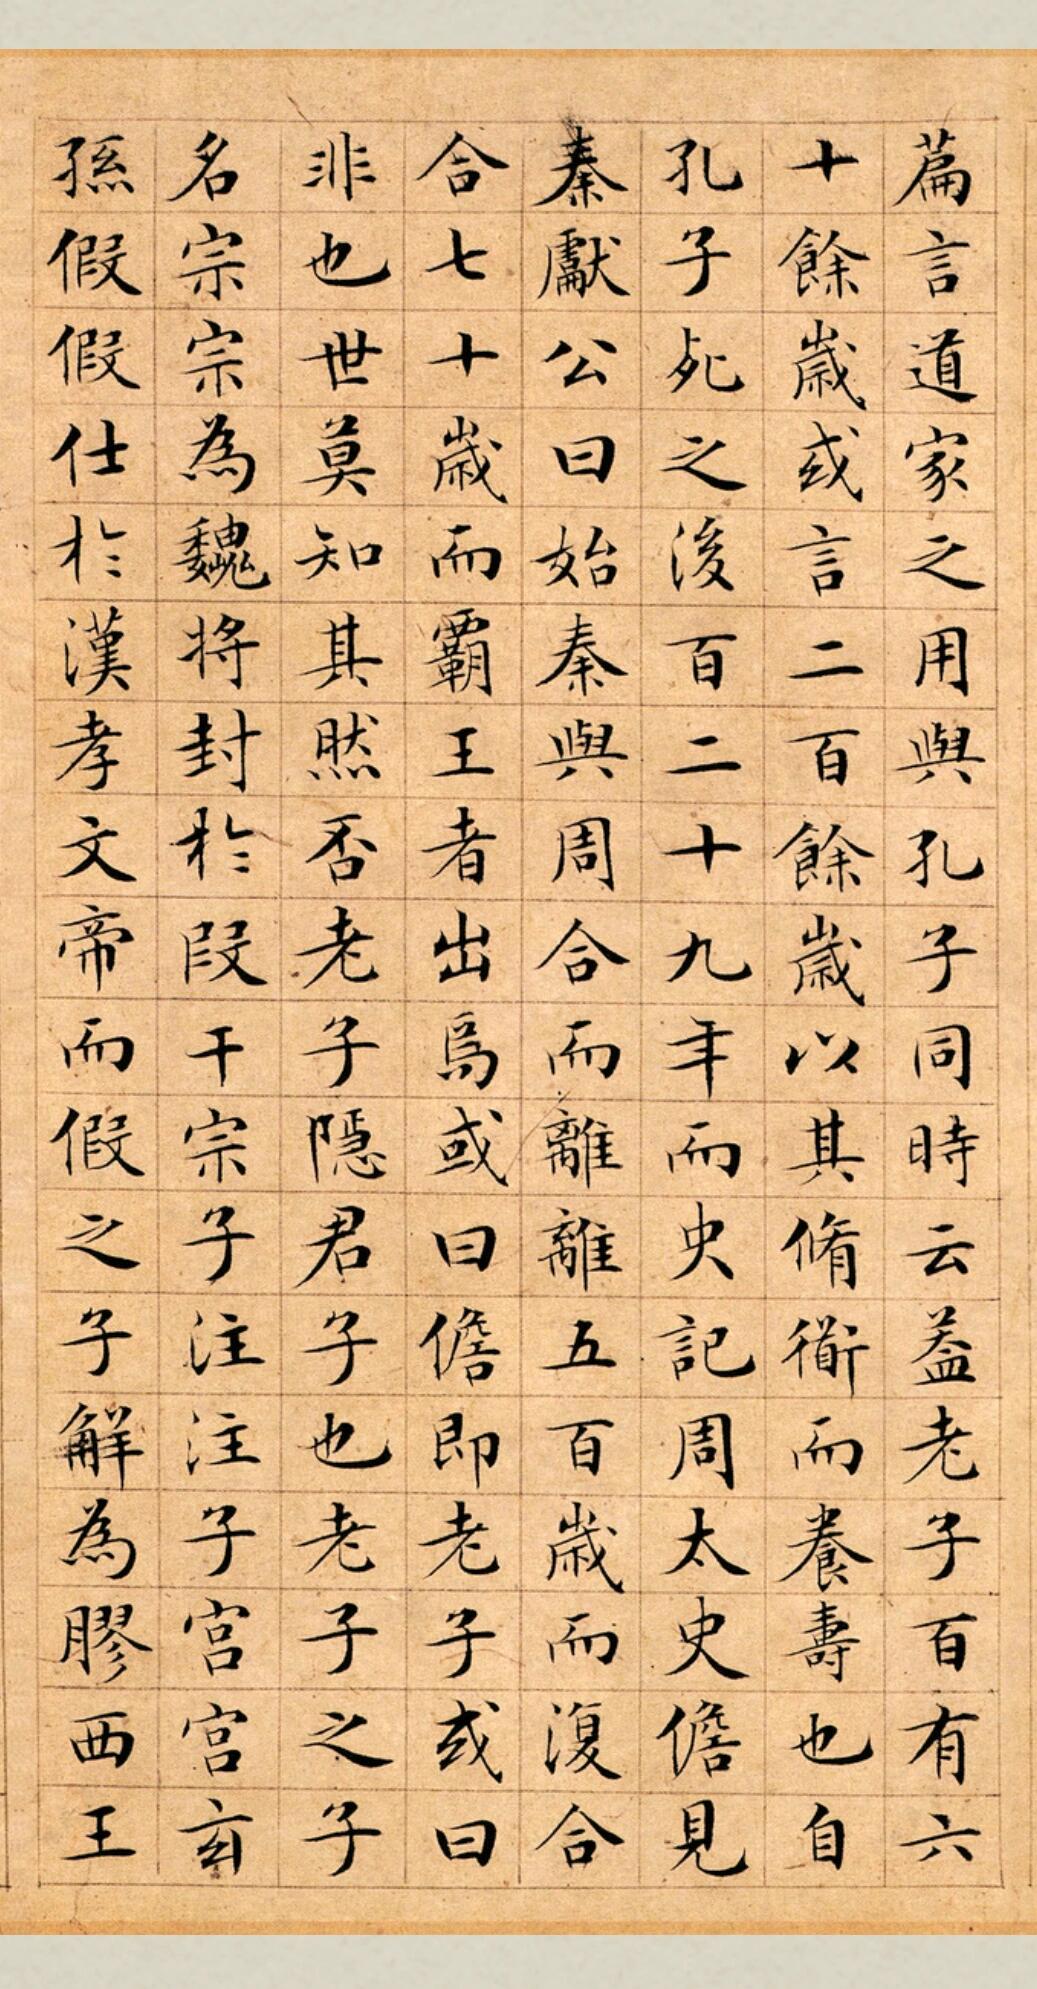 篇言道家之用與孔子同時云蓋老子百有六
十餘歲或言二百餘歲以其脩術而養壽也自
孔子死之後百二十九年而史記周太史儋見
秦獻公曰始秦與周合而離離五百歲而復合
合七十歲而霸王者出焉或曰儋即老子或曰
非也世莫知其然否老子隱君子也老子之子
名宗宗為魏將封於段干宗子注注子宮宮玄
孫假假仕於漢孝文帝而假之子解為膠西王